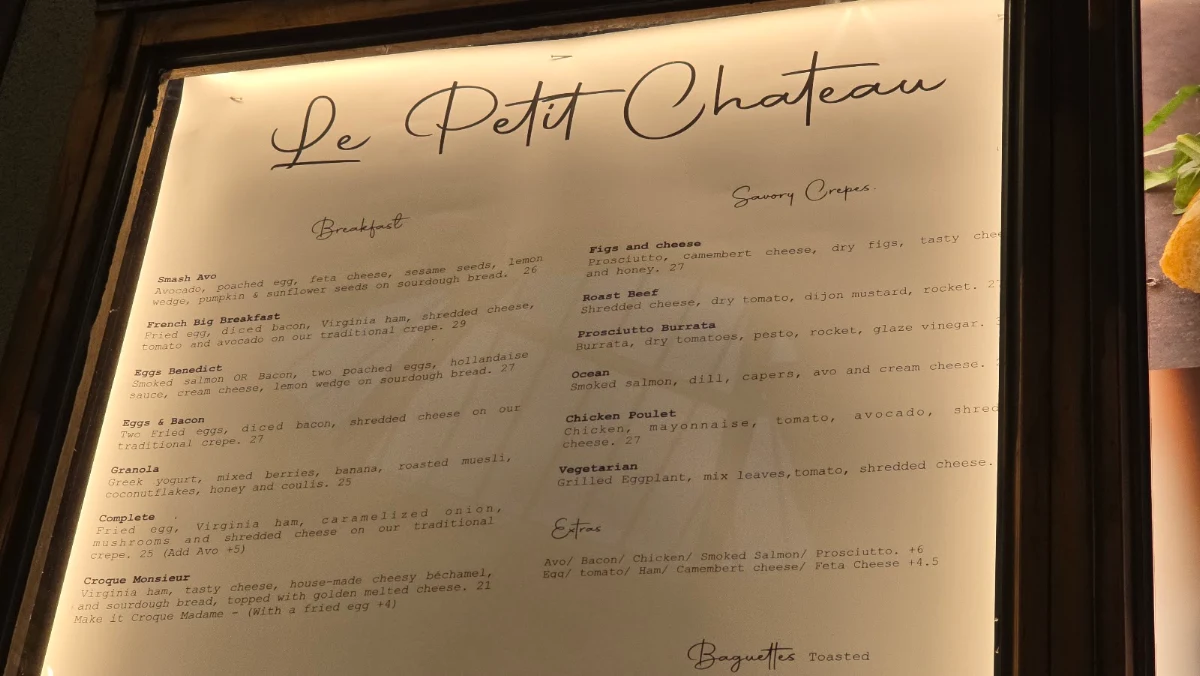 Le Petit Chateau
Breakfast
Smash Avo
Avocado, poached egg, feta cheese, sesame seeds, lemon
wedge, pumpkin & sunflower seeds on sourdough bread. 26
French Big Breakfast
Fried egg, diced bacon, Virginia ham, shredded cheese,
tomato and avocado on our traditional crepe. 29
Eggs Benedict
Smoked salmon OR Bacon, two poached eggs, hollandaise
sauce, cream cheese, lemon wedge on sourdough bread. 27
Eggs & Bacon
Two Fried eggs, diced bacon, shredded cheese on our
traditional crepe. 27
Granola
Greek yogurt, mixed berries, banana, roasted muesli,
coconutflakes, honey and coulis. 25
Complete
Fried egg, Virginia ham, caramelized onion,
mushrooms and shredded cheese on our traditional
crepe. 25 (Add Avo +5)
Croque Monsieur
Virginia ham, tasty cheese, house-made cheesy béchamel,
and sourdough bread, topped with golden melted cheese. 21
Make it Croque Madame - (With a fried egg +4)
Savory Crepes.
Figs and cheese
Prosciutto, camembert cheese, dry figs, tasty
and honey. 27
Roast Beef
Shredded cheese, dry tomato, dijon mustard, rocket.
Prosciutto Burrata
Burrata, dry tomatoes, pesto, rocket, glaze vinegar.
Ocean
Smoked salmon, dill, capers, avo and cream cheese.
Chicken Poulet
Chicken, mayonnaise, tomato, avocado, shred
cheese. 27
Vegetarian
Grilled Eggplant, mix leaves,tomato, shredded cheese.
Extras
Avo/ Bacon/ Chicken/ Smoked Salmon/ Prosciutto. +6
Egg/ tomato/ Ham/ Camembert cheese/ Feta Cheese +4.5
Baguettes Toasted